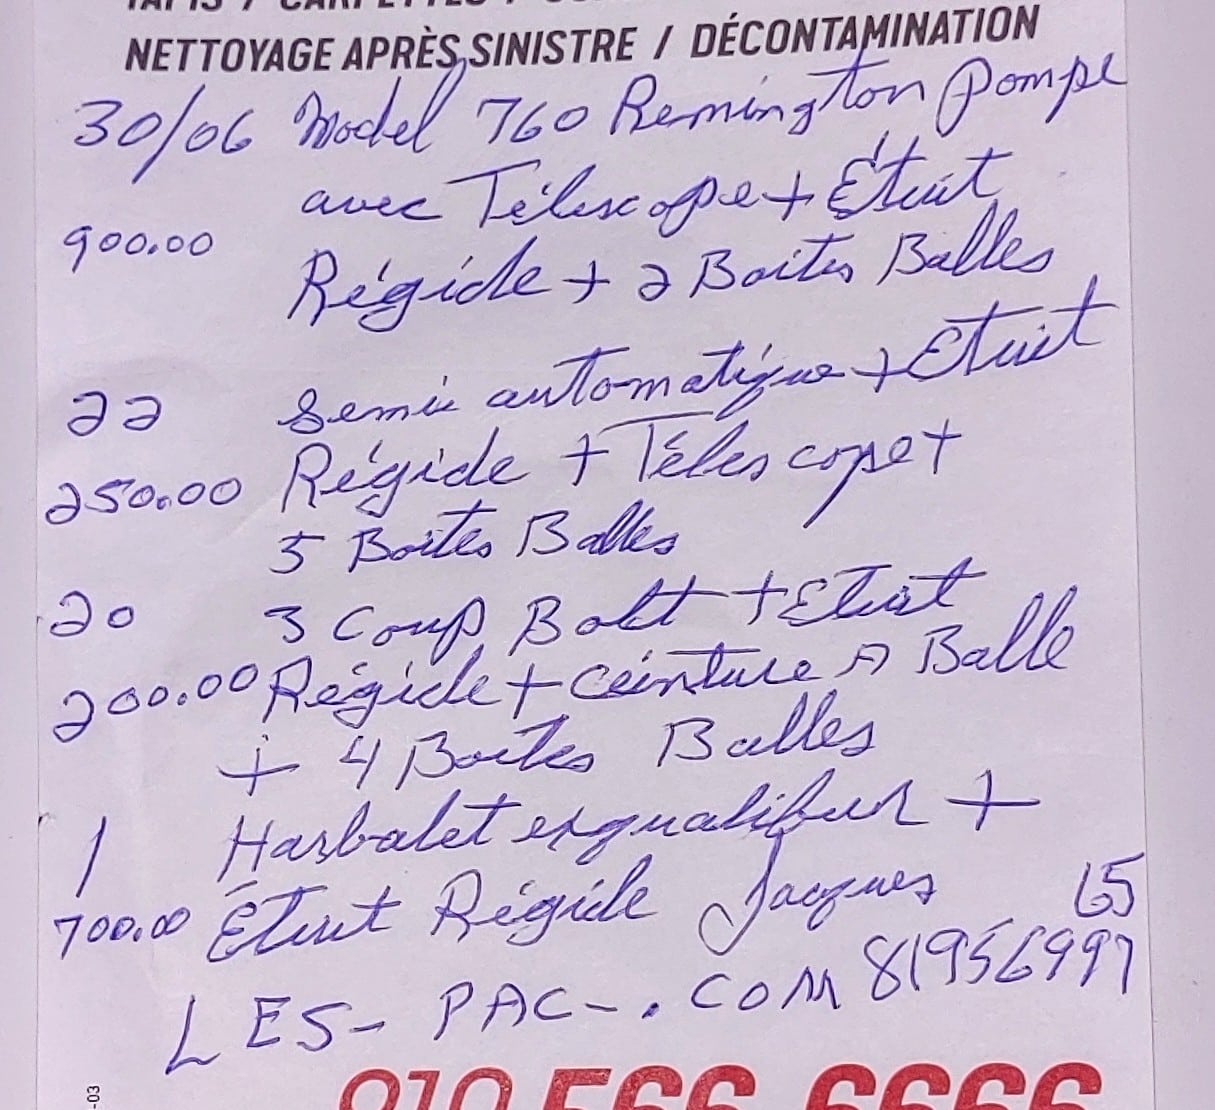 NETTOYAGE APRÈS SINISTRE / DÉCONTAMINATION
30/06 Model 760 Remington Pompe
avec Télescope + Étuit
900.00 Régide + 2 Boites Balles
22 Semie automatique + Etuit
250.00 Régide + Télescope +
5 Boites Balles
20 3 Coup Bolt + Etuit
200.00 Régide + Ceinture A Balle
+ 4 Boites Balles
1 Harbalet +
700.00 Étuit Régide Jacques 65
LES-PAC-.COM 81956997
819 566-6666
-03